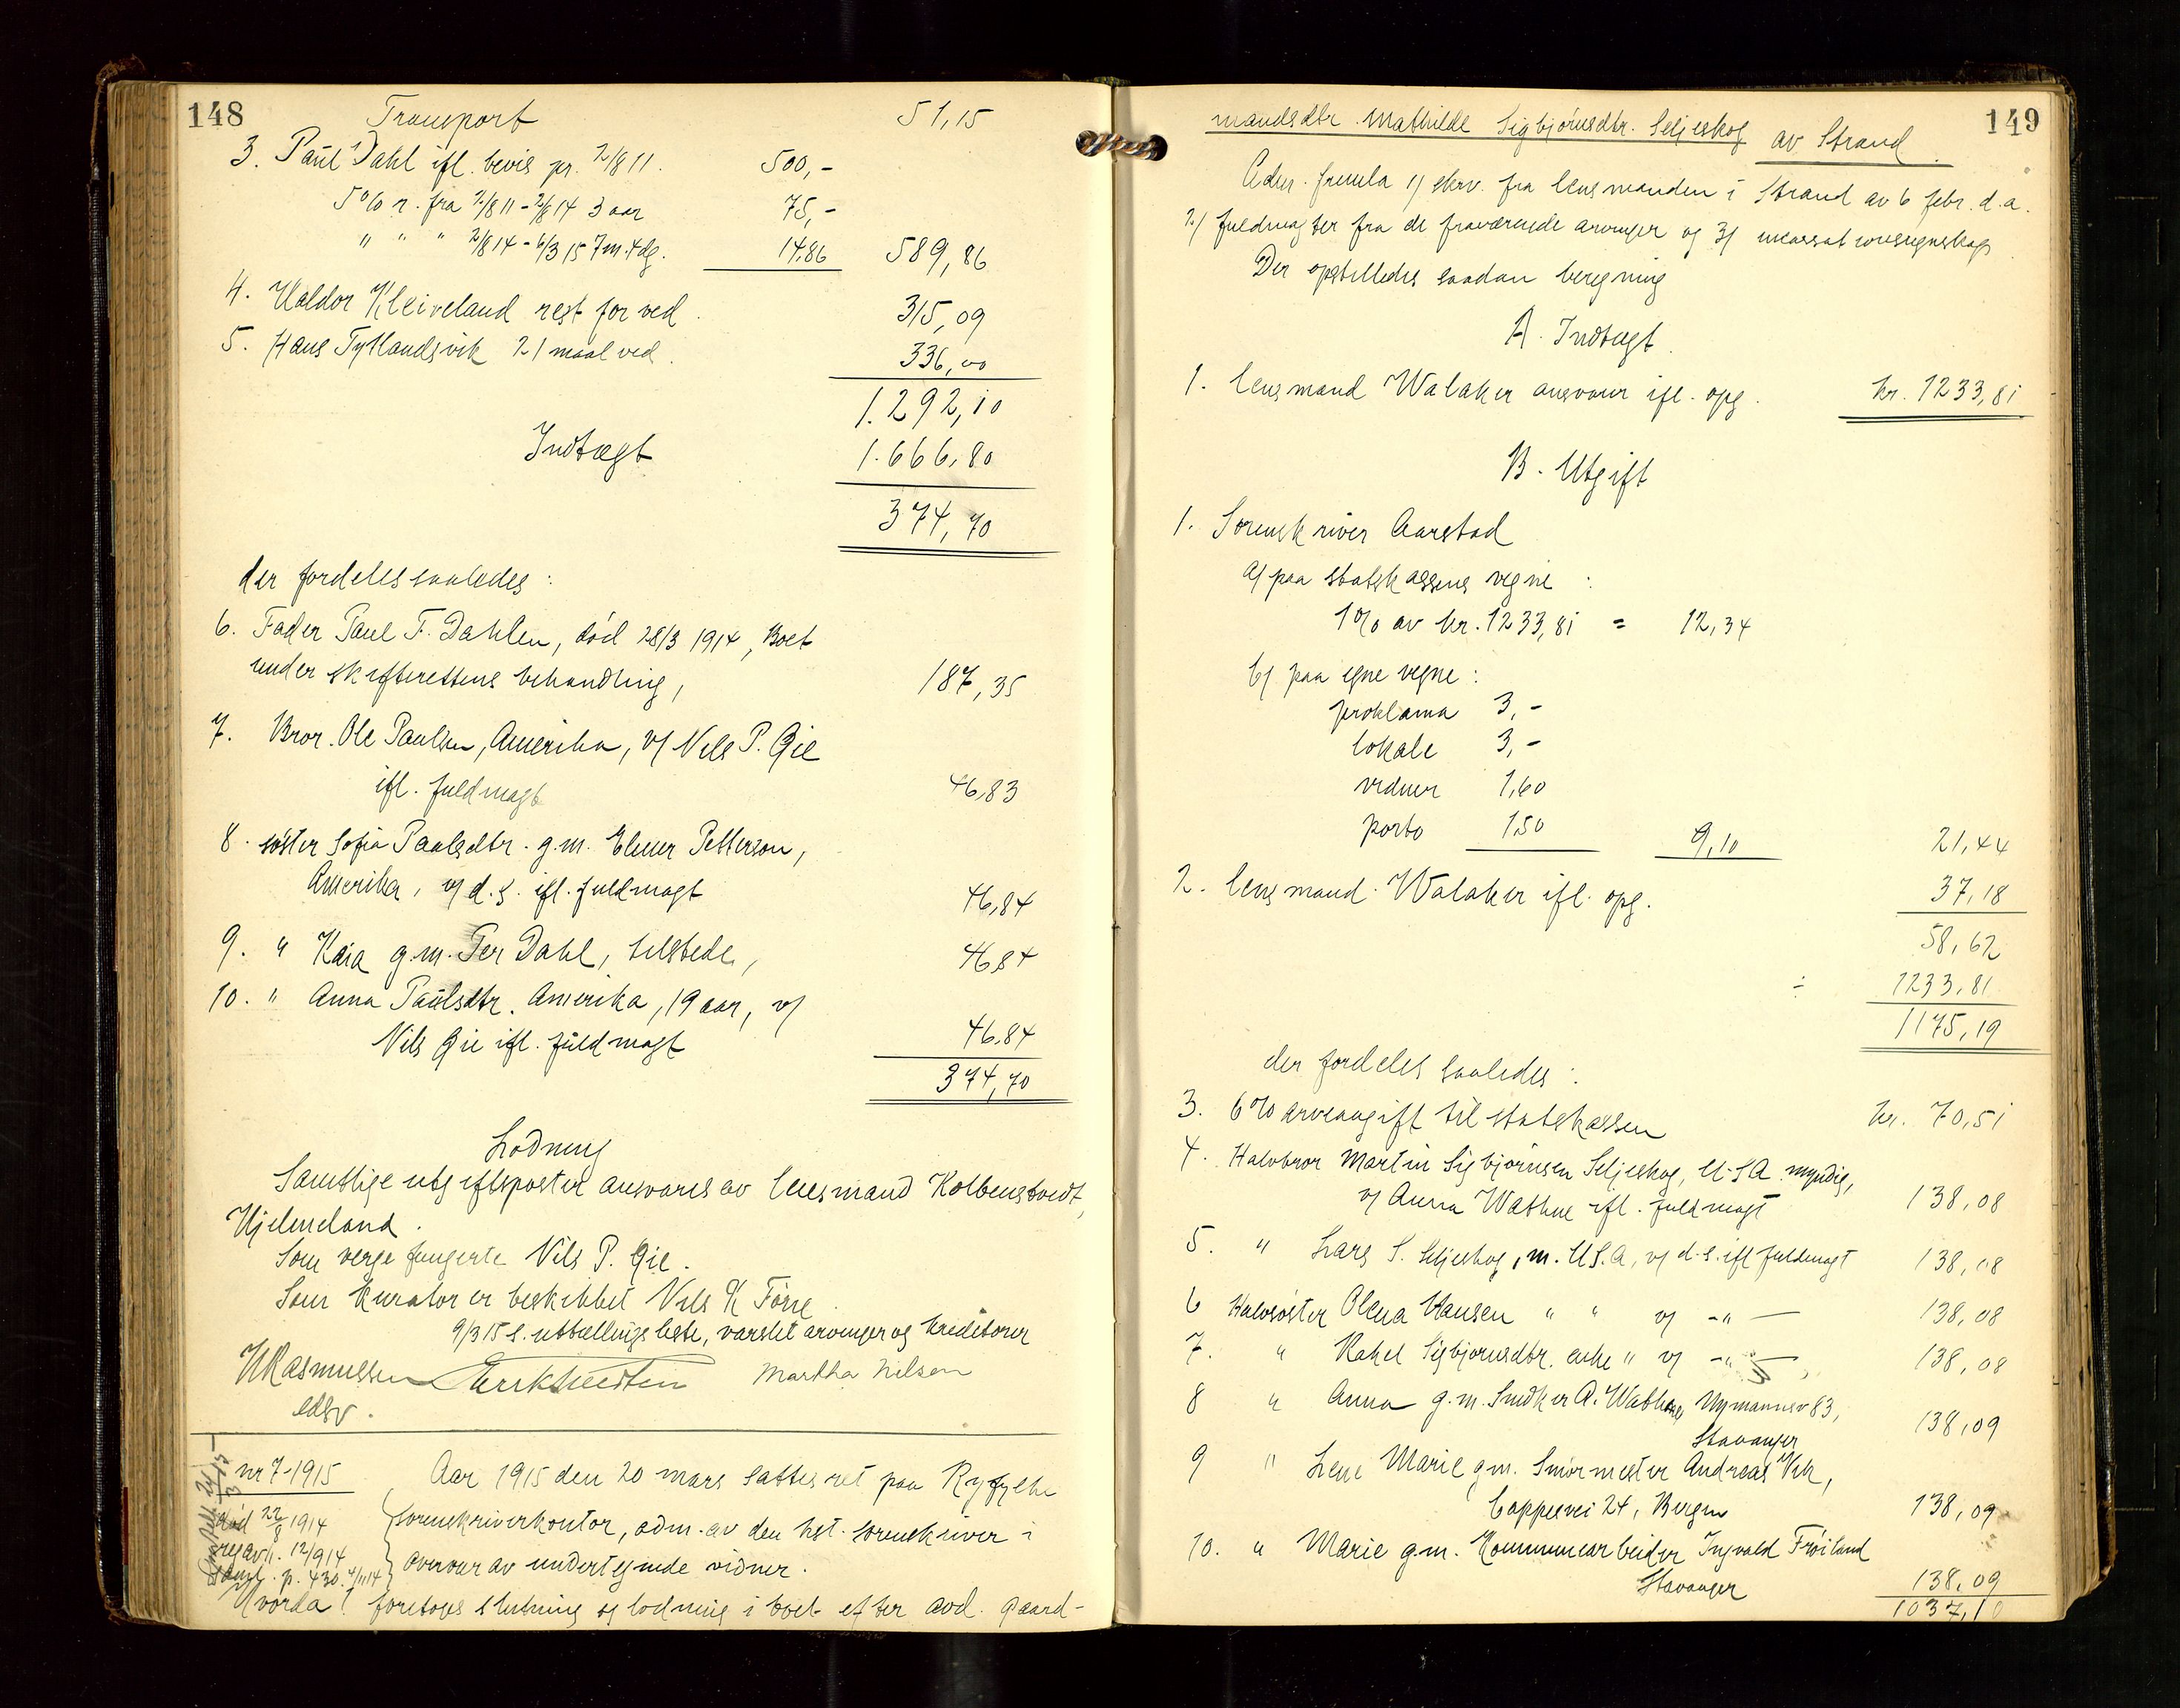 148
Transport 51,15
3. Paul Dahl ifl. bevis pr. 2/8 11. 500,-
5% r. fra 2/8 11 - 2/8 14 3 aar 75,-
" " " 2/8 14 - 6/3 15 7 m. 4 dg. 14,86 589,86
4. Haldor Kleiveland rest for ved. 315,09
5. Hans Tytlandsvik 21 maal ved. 336,00
1.292,10
Indtægt 1.666,80
374,70
der fordeles saaledes:
6. Fader Paul F. Dahlen, död 28/3 1914, Boet
under skifterettens behandling, 187,35
7. Bror. Ole Paulsen, Amerika, v/ Nils P. Gie
ifl. fuldmagt 46,83
8. söster Sofia Paulsdtr. g.m. Elmer Petterson,
Amerika, v/ d.s. ifl. fuldmagt 46,84
9. " Kaia g.m. Per Dahl, tilstede, 46,84
10. " Anna Paulsdtr. Amerika, 19 aar, v/
Nils Gie ifl. fuldmagt 46,84
374,70
Lodning
Samtlige utgiftsposter ansvares av lensmand Kolbenstvedt,
Hjelmeland.
Som verge fungerte Nils P. Gie.
Som kurator er beskikket Nils K Förre.
9/3 15 s. utlællings liste, varslet arvinger og kreditorer
H Rasmussen Martha Nilsen
edsv.
nr 7-1915 Aar 1915 den 20 mars sattes ret paa Ryfylke
död 22/8 1914 sorenskriverkontor, adm. av den kst. sorenskriver i
12/9 14 overvær av undertegnede vidner.
p. 430. 4/11 14
Hvorda! foretoges slutning og lodning i boet efter avd. gaard-
149
mandsdtr. Mathilde Sigbjörnsdtr. Seljeskog av Strand.
Adm. fremla 1/ skrv. fra lensmanden i Strand av 6 febr. d.a.
2/ fuldmagter fra de fraværende arvinger og 3/ incassationsregnskap
Der opstilledes saadan beregning
A. Indtægt.
1. lensmand Walaker ansvarer ifl. opg. kr. 1233,81
B. Utgift
1. Sorenskriver Aarstad
a/ paa statskassens vegne:
1% av kr. 1233,81 = 12,34
b/ paa egne vegne:
proklama 3,-
lokale 3,-
vidner 1,60
porto 1,50 9,10 21,44
2. lensmand Walaker ifl. opg. 37,18
58,62
÷ 1233,81
1175,19
der fordeles saaledes:
3. 6% arveavgift til statskassen kr. 70,51
4. Halvbror Martin Sigbjörnsen Seljeskog, U.S.A. myndig,
v/ Anna Wathne ifl. fuldmagt 138,08
5. " Lars S. Seljeskog, m. U.S.A, v/ d.s. ifl fuldmagt 138,08
6 Halvsöster Olena Hansen " " v/ -"- 138,08
7. " Rakel Sigbjörnsdtr. enke " v/ -"-, 138,08
8 " Anna g.m. Snedker A. Wathne, Nymannsv 83,
Stavanger 138,09
9 " Lene Marie g.m. Smörmester Andreas Vik,
Cappesvei 24, Bergen 138,09
10. " Marie g.m. Kommunearbeider Ingvald Fröiland
Stavanger 138,09
1037,10